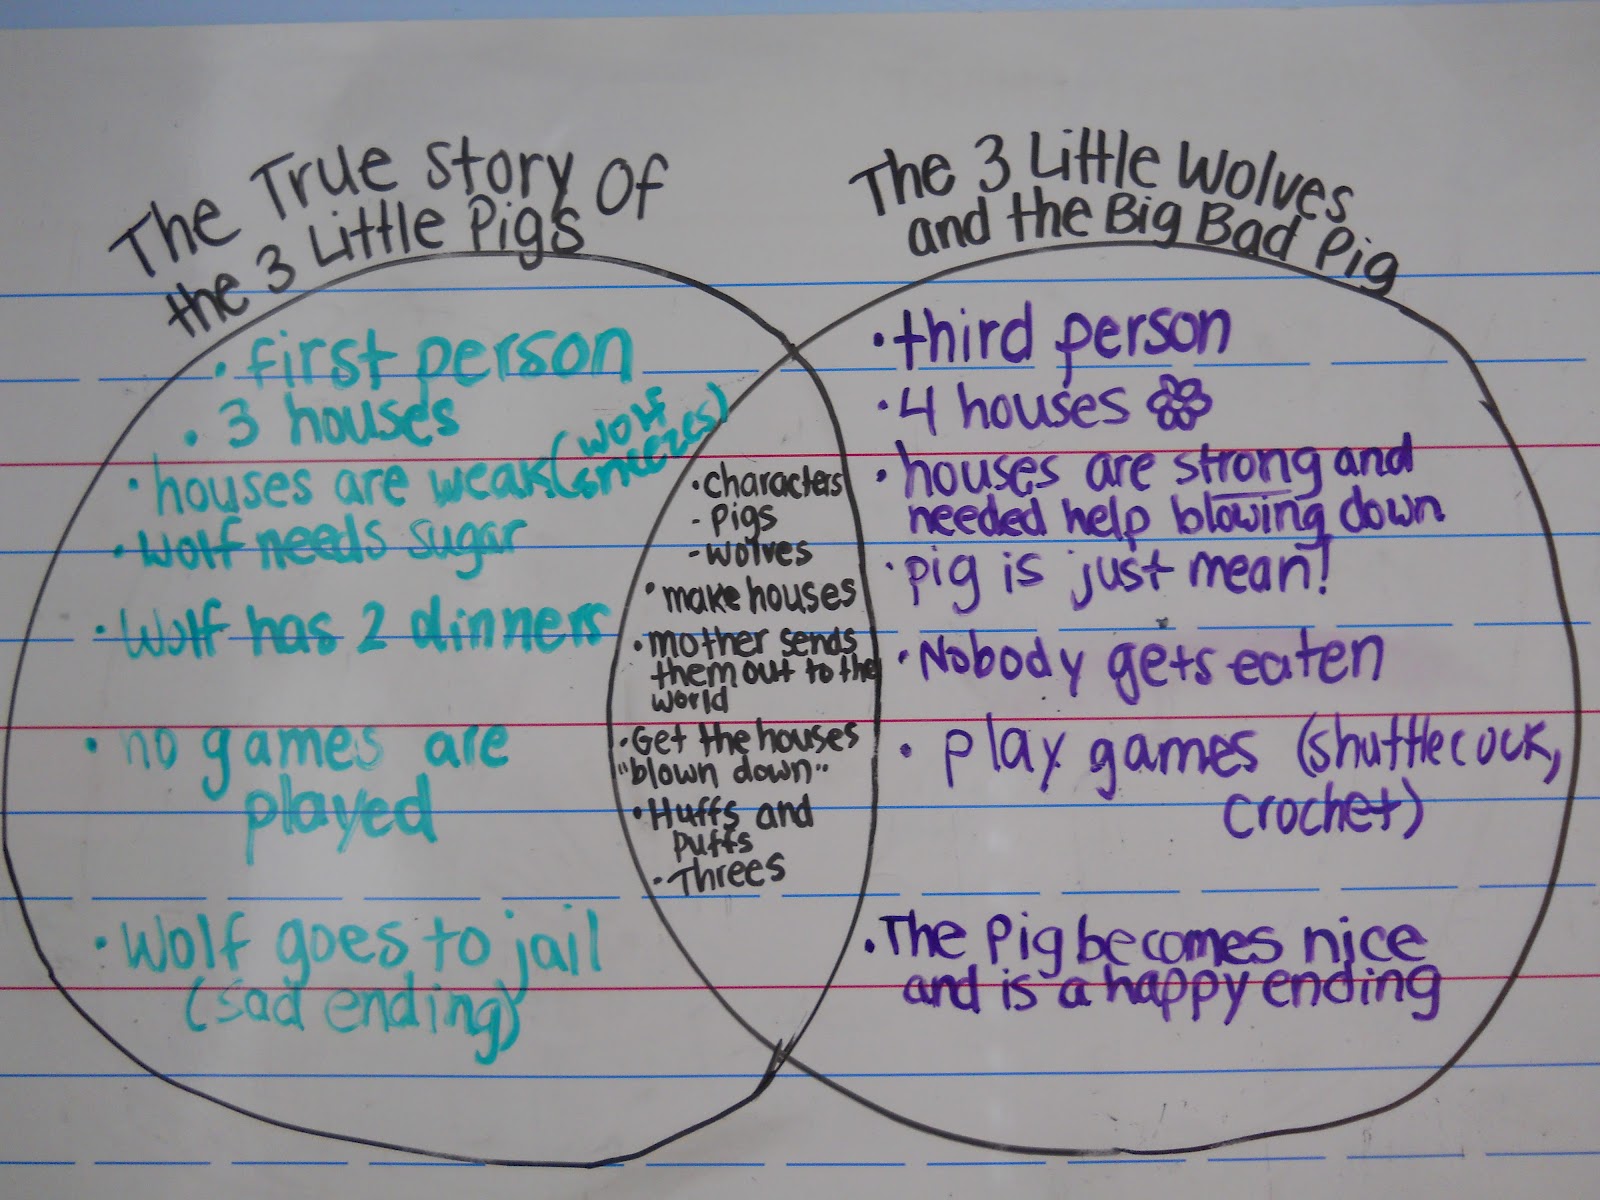 The True Story Of
the 3 Little Pigs
The 3 Little Wolves
and the Big Bad Pig
• first person
• 3 houses
• houses are weak (wolf
sneezes)
• Wolf needs sugar
• Wolf has 2 dinners
• no games are
played
• Wolf goes to jail
(sad ending)
• characters
- Pigs
- wolves
• make houses
• mother sends
them out to the
world
• Get the houses
"blown down"
• Huffs and
Puffs
• Threes
• third person
• 4 houses
• houses are strong and
needed help blowing down
• pig is just mean!
• Nobody gets eaten
• play games (shuttlecock,
crochet)
• The Pig becomes nice
and is a happy ending